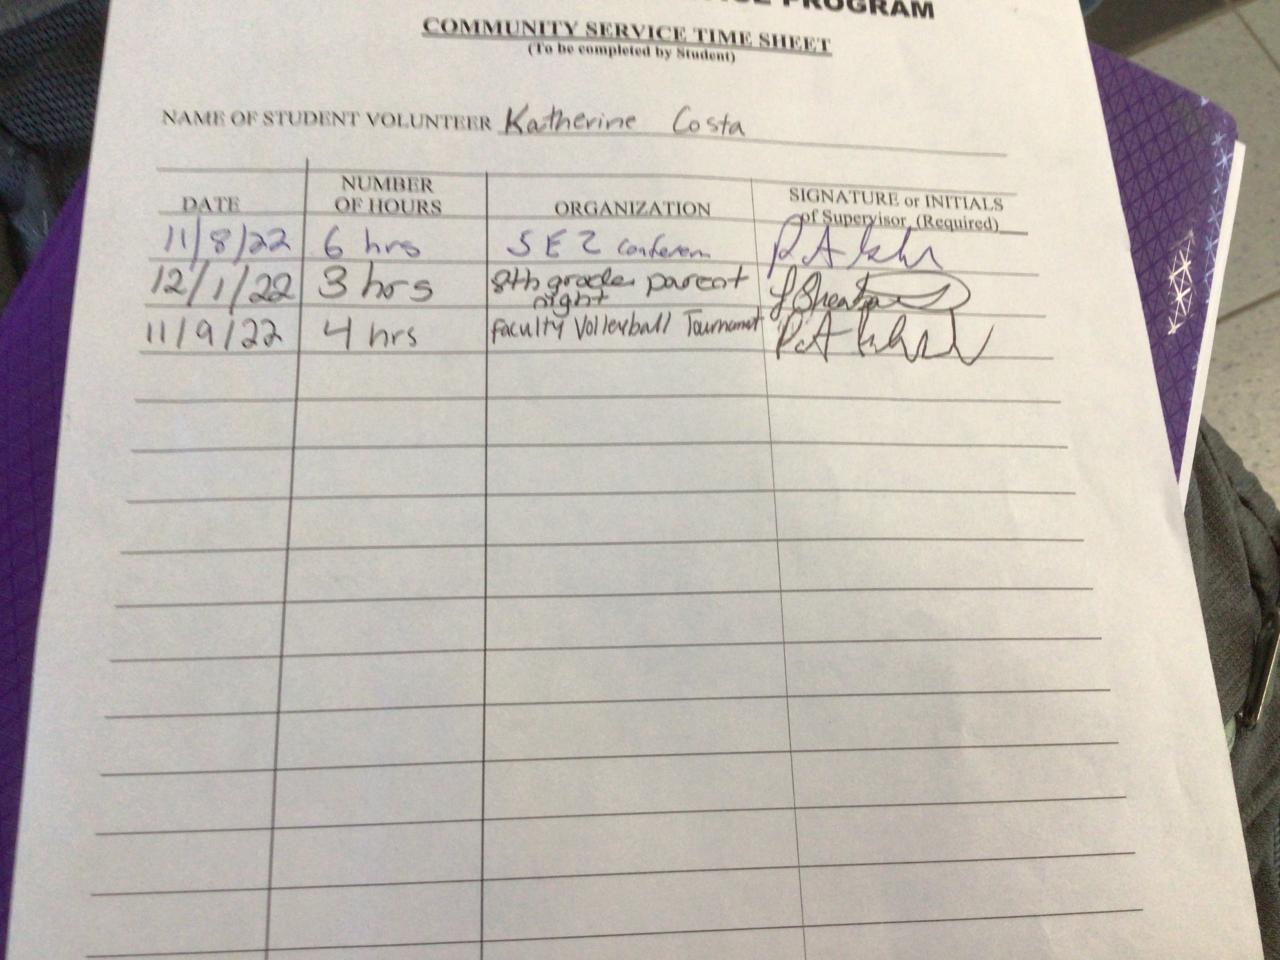 PROGRAM
COMMUNITY SERVICE TIME SHEET
(To be completed by Student)
NAME OF STUDENT VOLUNTEER Katherine Costa
DATE NUMBER OF HOURS ORGANIZATION SIGNATURE or INITIALS of Supervisor (Required)
11/8/22 6 hrs SEL conferen
12/1/22 3 hrs 8th grade parent night
11/9/22 4 hrs Faculty Volleyball Tournament